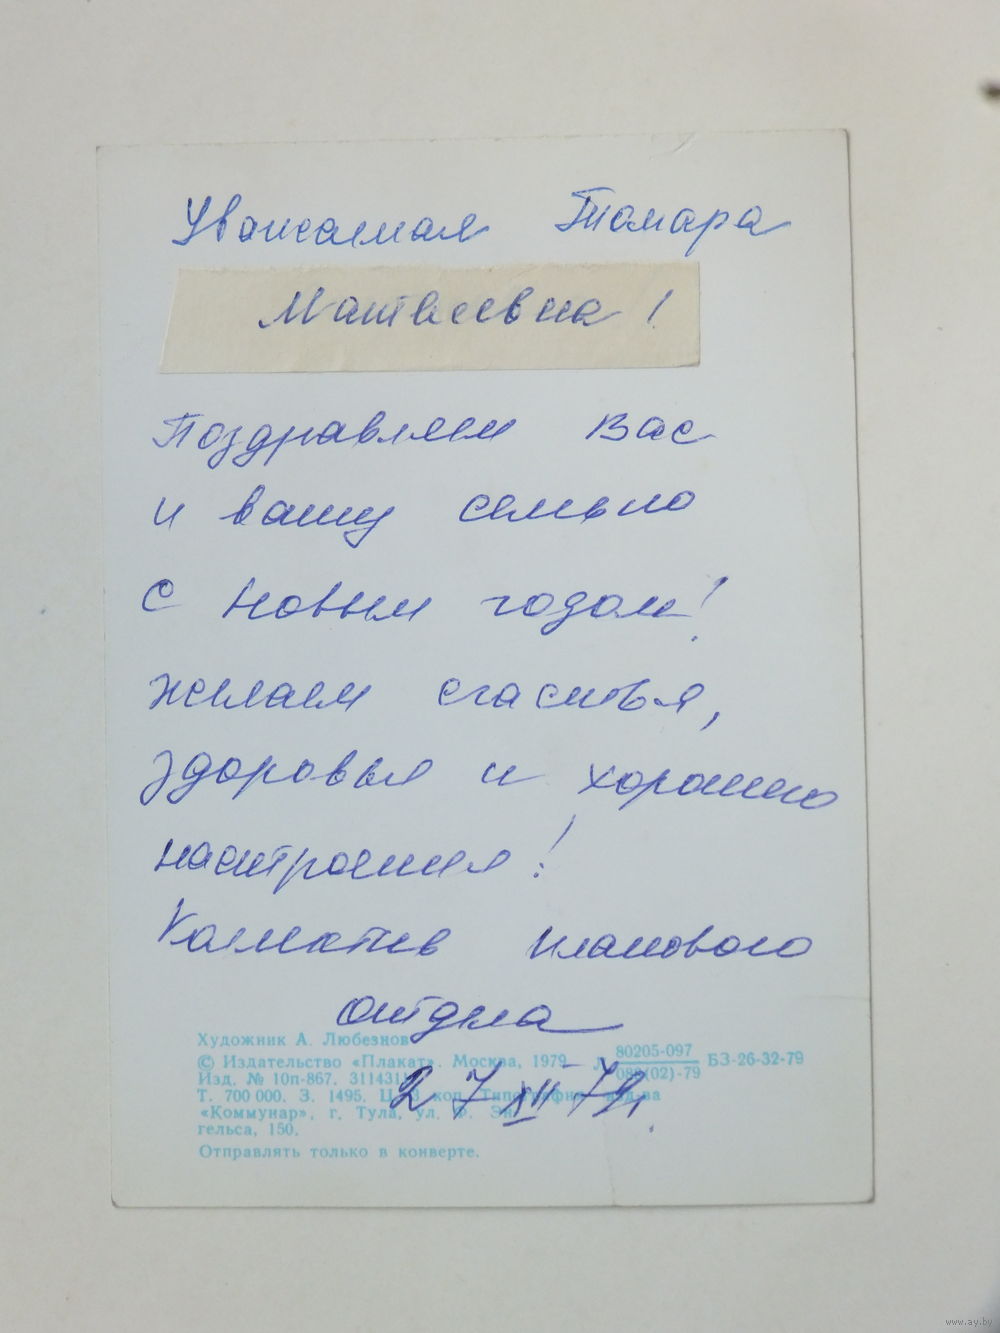 Уважаемая Тамара
Матвеевна!
Поздравляем Вас
и вашу семью
с Новым годом!
Желаем счастья,
здоровья и хорошего
настроения!
Коллектив планового
отдела
Художник А. Любезнов
© Издательство «Плакат». Москва, 1979. 80205-097 БЗ-26-32-79
088(02)-79
Изд. № 10п-867.
Т. 700 000. З. 1495. Типография
«Коммунар», г. Тула, ул. Ф. Эн-
гельса, 150.
27 XII 79г.
Отправлять только в конверте.
www.ay.by